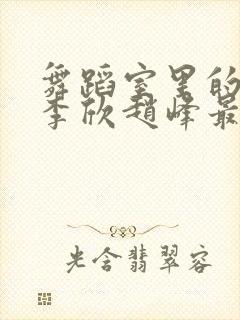 舞蹈室里的
李欣赵峰最
光含翡翠容